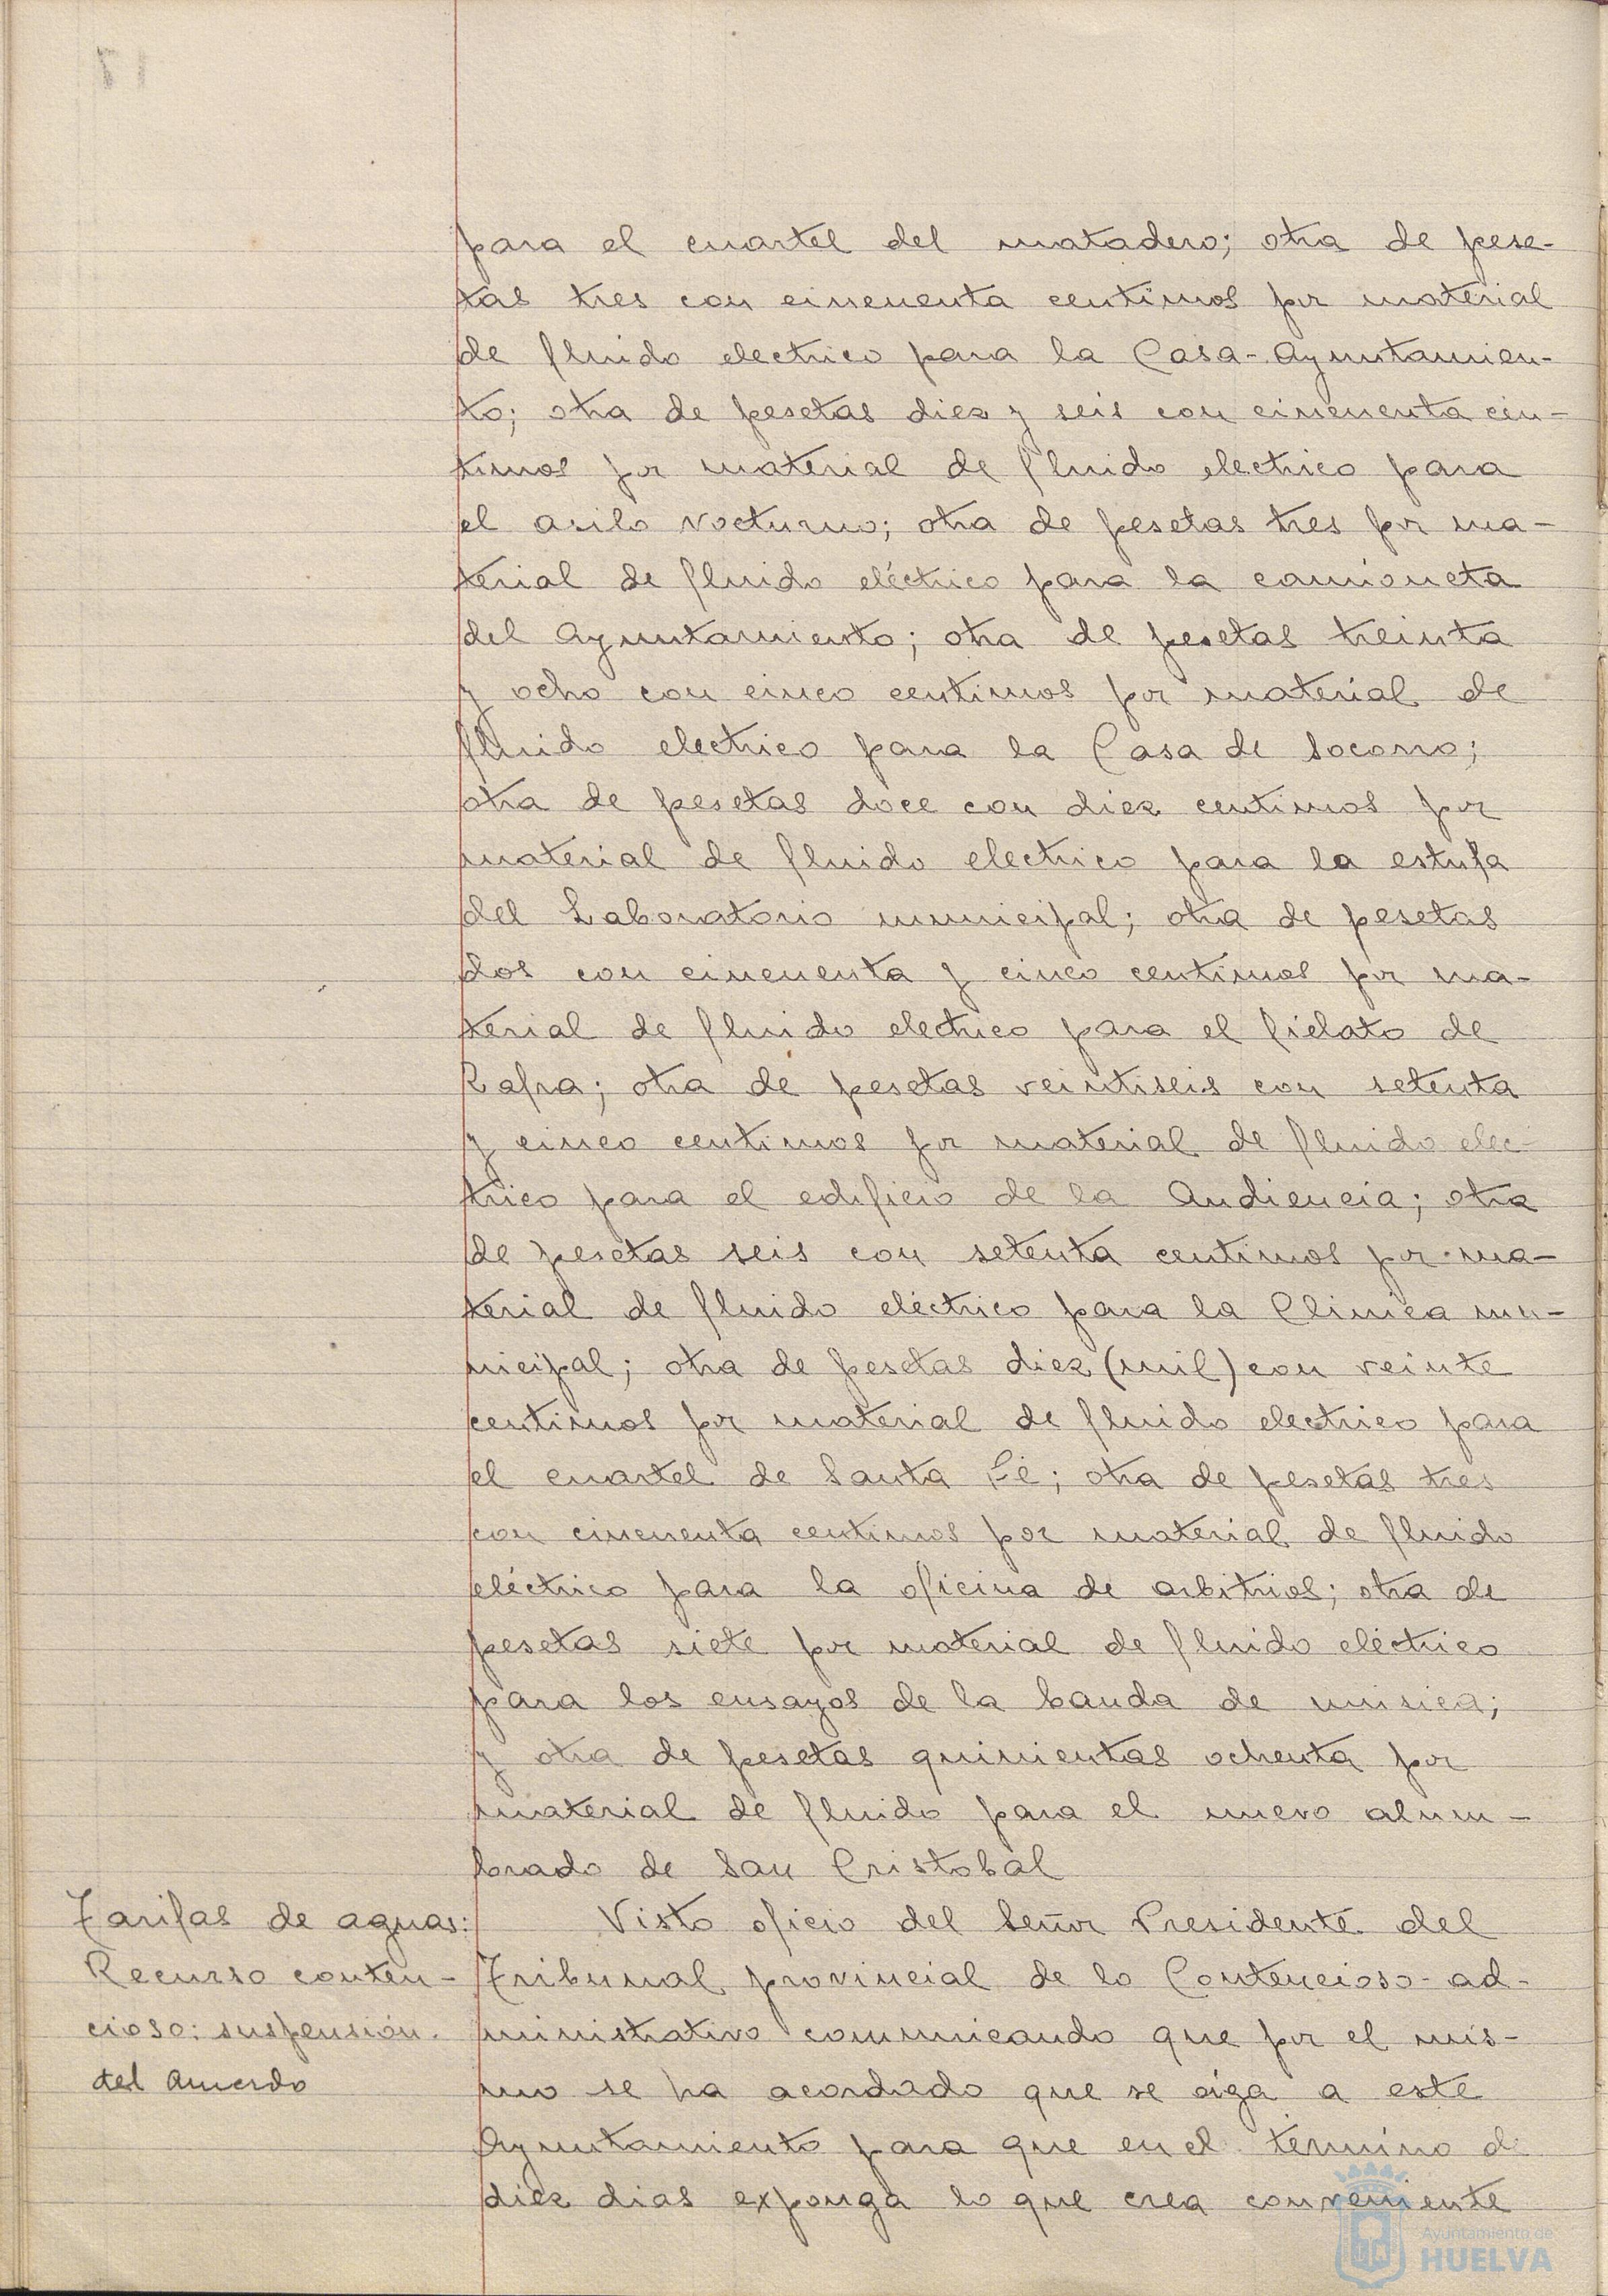 para el cuartel del matadero; otra de pese-
tas tres con cincuenta centimos por material
de fluido electrico para la Casa-Ayuntamien-
to; otra de pesetas diez y seis con cincuenta cén-
timos por material de fluido electrico para
el asilo nocturno; otra de pesetas tres por ma-
terial de fluido eléctrico para la camioneta
del Ayuntamiento; otra de pesetas treinta
y ocho con cinco centimos por material de
fluido electrico para la Casa de Socorro;
otra de pesetas doce con diez centimos por
material de fluido electrico para la estufa
del Laboratorio municipal; otra de pesetas
dos con cincuenta y cinco centimos por ma-
terial de fluido electrico para el fielato de
Zafra; otra de pesetas veintiseis con setenta
y cinco centimos por material de fluido elec-
trico para el edificio de la Audiencia; otra
de pesetas seis con setenta centimos por ma-
terial de fluido eléctrico para la Clinica mu-
nicipal; otra de pesetas diez (mil) con veinte
centimos por material de fluido electrico para
el cuartel de Santa Fé; otra de pesetas tres
con cincuenta centimos por material de fluido
eléctrico para la oficina de arbitrios; otra de
pesetas siete por material de fluido eléctrico
para los ensayos de la banda de musica;
y otra de pesetas quinientas ochenta por
material de fluido para el nuevo alum-
brado de San Cristobal
Tarifas de aguas:
Recurso conten-
cioso: suspensión
del Acuerdo
Visto oficio del Señor Presidente del
Tribunal provincial de lo Contencioso-ad-
ministrativo comunicando que por el mis-
mo se ha acordado que se oiga a este
Ayuntamiento para que en el término de
diez dias exponga lo que crea conveniente
Ayuntamiento de
HUELVA
17